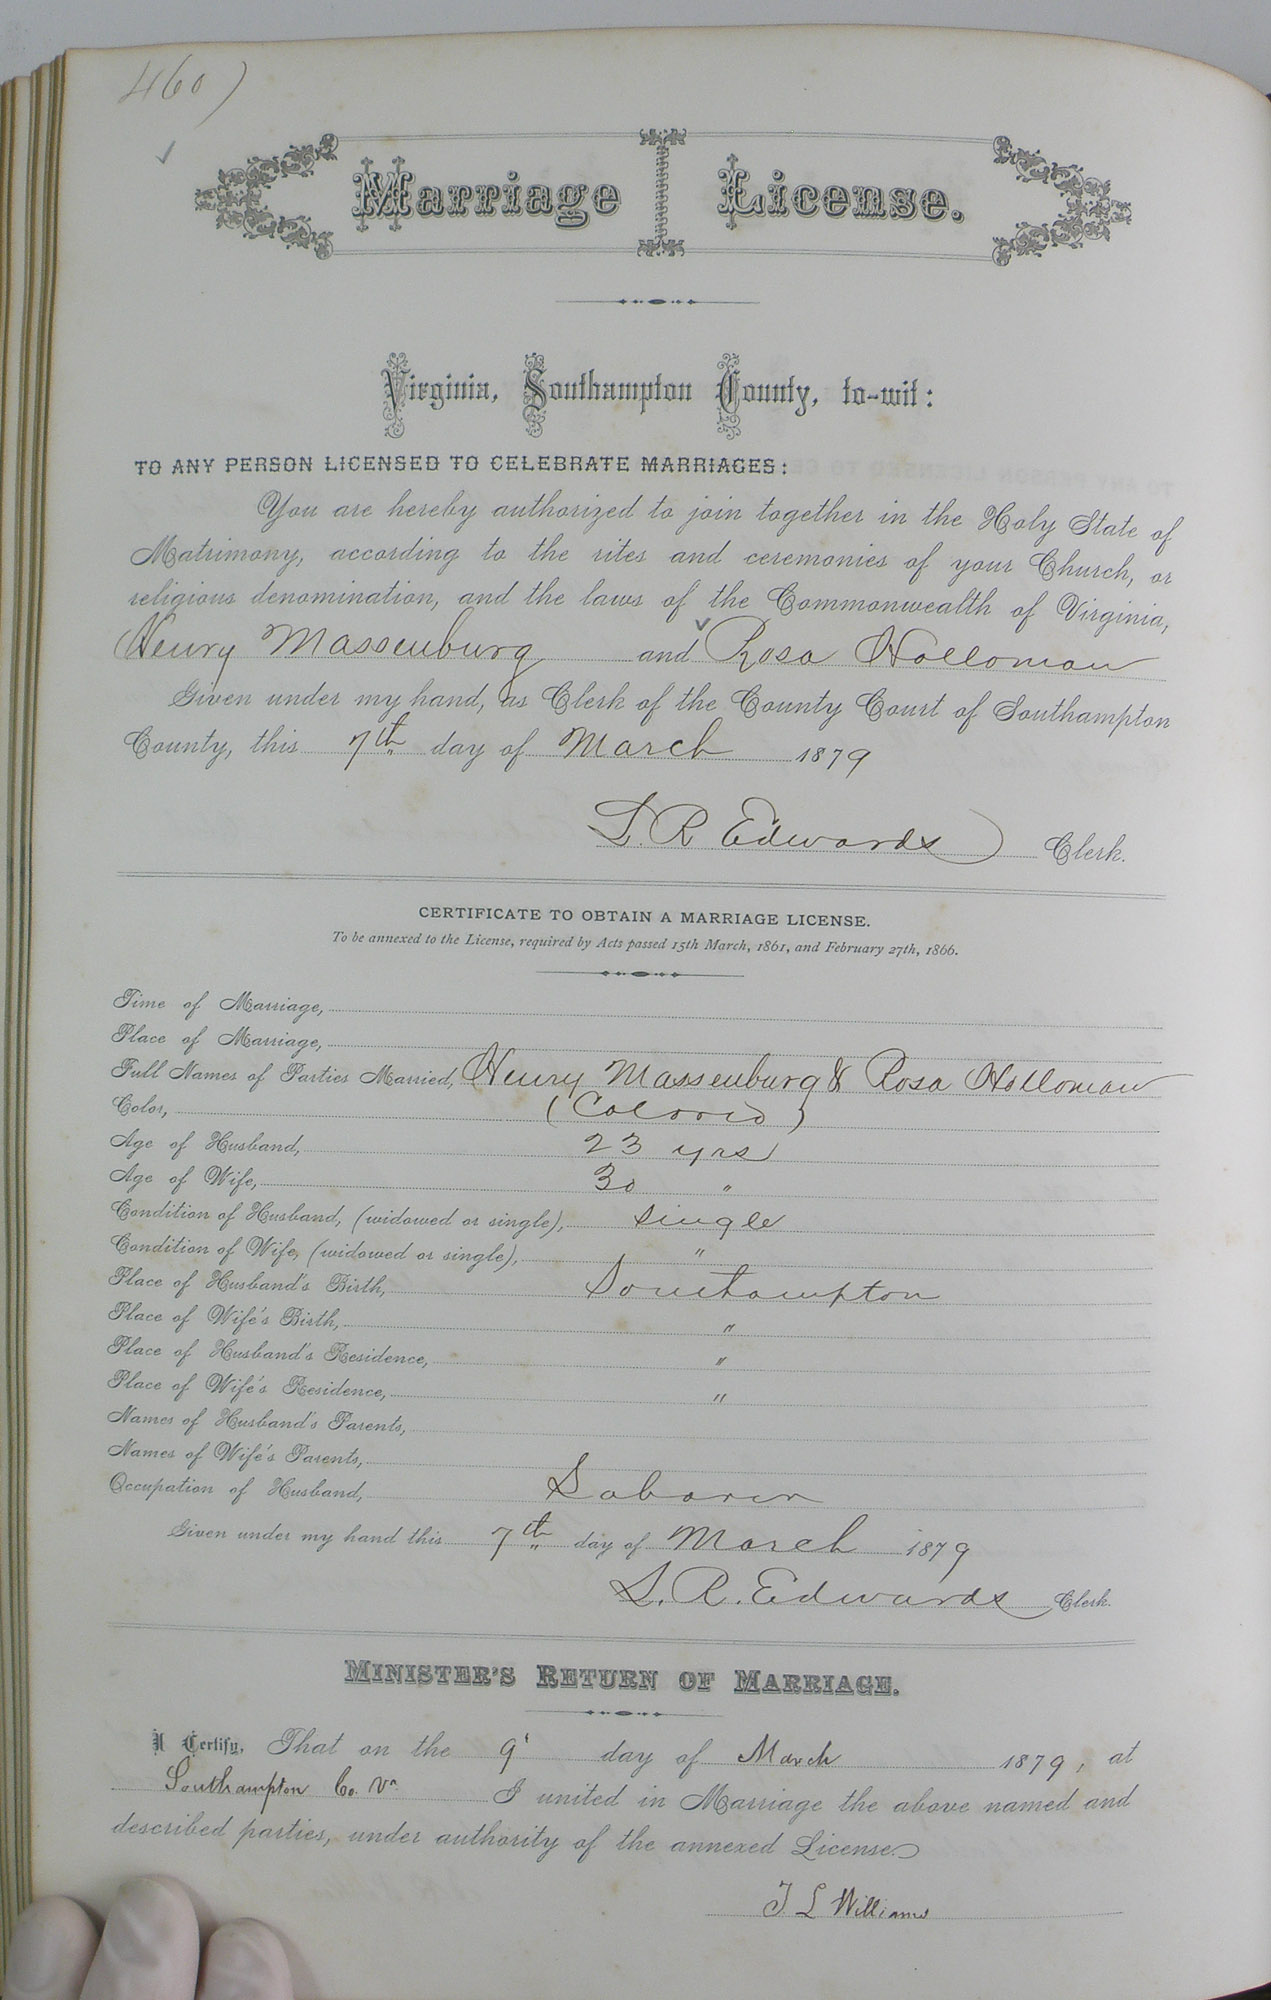 460)
Marriage License.
Virginia, Southampton County, to-wit:
TO ANY PERSON LICENSED TO CELEBRATE MARRIAGES:
You are hereby authorized to join together in the Holy State of
Matrimony, according to the rites and ceremonies of your Church, or
religious denomination, and the laws of the Commonwealth of Virginia,
Henry Massenburg and Rosa Holloman
Given under my hand, as Clerk of the County Court of Southampton
County, this 7th day of March 1879
L. R Edwards Clerk.
CERTIFICATE TO OBTAIN A MARRIAGE LICENSE.
To be annexed to the License, required by Acts passed 15th March, 1861, and February 27th, 1866.
Time of Marriage,
Place of Marriage,
Full Names of Parties Married, Henry Massenburg & Rosa Holloman
Color, (Colored)
Age of Husband, 23 yrs
Age of Wife, 30 "
Condition of Husband, (widowed or single), single
Condition of Wife, (widowed or single), "
Place of Husband's Birth, Southampton
Place of Wife's Birth, "
Place of Husband's Residence, "
Place of Wife's Residence, "
Names of Husband's Parents,
Names of Wife's Parents,
Occupation of Husband, Laborer
Given under my hand this 7th day of March 1879
L. R. Edwards Clerk.
MINISTER'S RETURN OF MARRIAGE.
I Certify, That on the 9' day of March 1879, at
Southampton Co. Va I united in Marriage the above named and
described parties, under authority of the annexed License.
J. L Williams